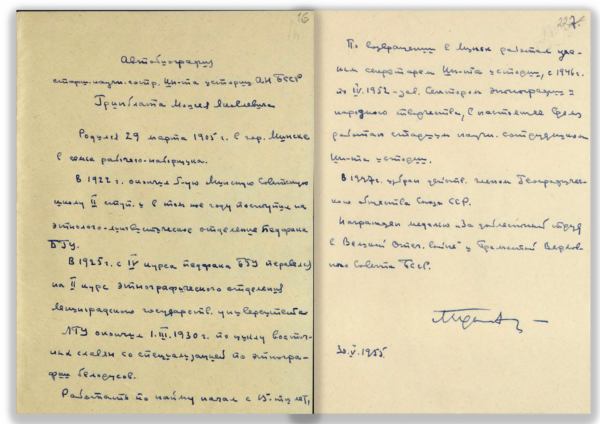 16
Автобиография
старш. научн. сотр. Ин-та истории АН БССР
Гринблата Моисея Яковлевича
Родился 29 марта 1905 г. в гор. Минске
в семье рабочего-наборщика.
В 1922 г. окончил 6-ую Минскую Советскую
школу II ступ. и в том же году поступил на
этнолого-лингвистическое отделение Педфака
БГУ.
В 1925 г. с IV курса педфака БГУ перевелся
на II курс этнографического отделения
Ленинградского государств. университета
ЛГУ окончил 1.III.1930 г. по циклу восточ-
ных славян со специализацией по этногра-
фии белорусов.
Работать по найму начал с 15-ти лет,
227.
По возвращении в Минск работал уче-
ным секретарем Ин-та истории, с 1946 г.
до IV.1952 - зав. Сектором этнографии и
народного творчества, в настоящее время
работаю старшим научн. сотрудником
Ин-та истории.
В 1947 г. избран действ. членом Географичес-
кого общества Союза ССР.
Награжден медалью «За доблестный труд
в Великой Отеч. войне» и Грамотой Верхов-
ного Совета БССР.
30.V.1955.